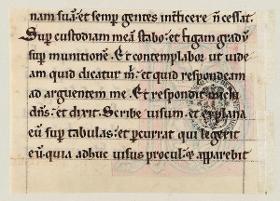 nam suā: et semꝑ gentes int̄ficere n̄ cessat.
Suꝑ custodiam meā stabo: et figam gradū
suꝑ munitionē. Et contemplabor ut uide
am quid dicatur m̄: et quid respondeam
ad arguentem me. Et respondit michi
dn̄s: et dixit. Scribe uisum: et explana
eū suꝑ tabulas: et ꝑcurrat qui legerit
eū. quia adhuc uisus procul: & apparebit